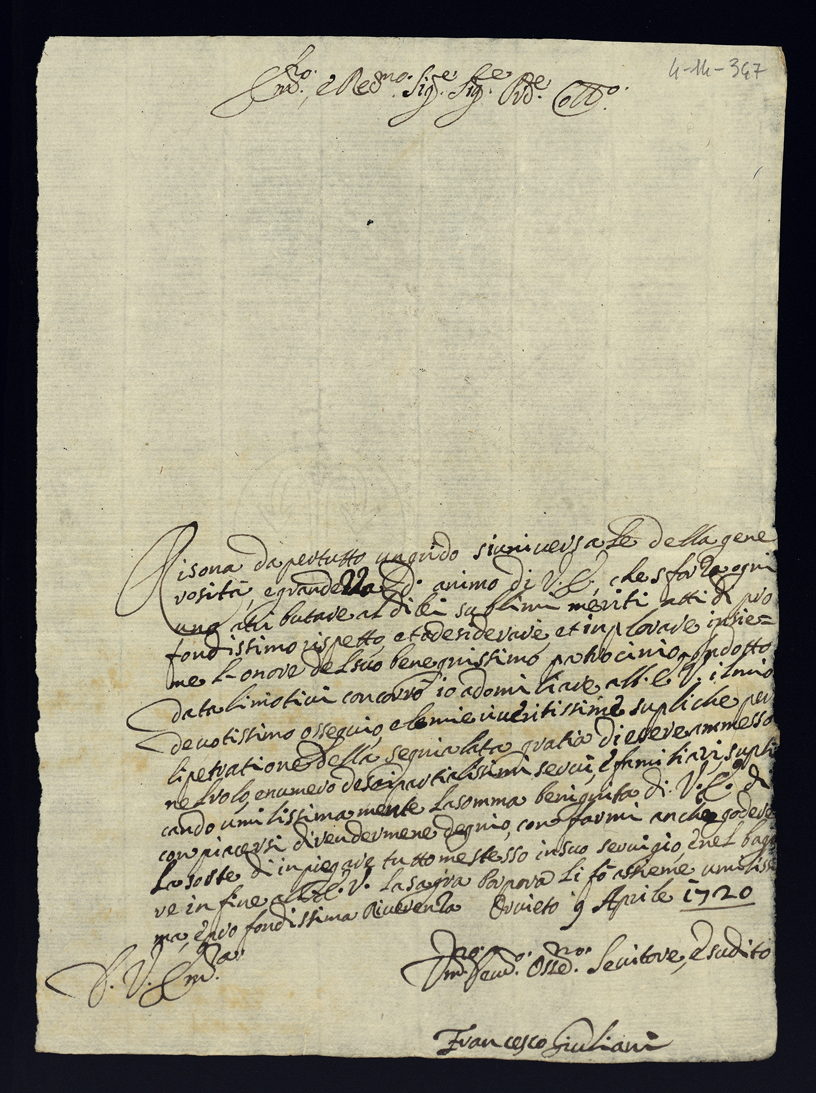 4-14-347
Em.mo e Red.mo Sig.e Sig.e Prõe Coll.o
Risona da pertutto un grido si universale della gene
rosità, e grandezza d'animo di V. E., che sforza ogni
uno attributare al di lei sublimi meriti atti di pro
fondissimo rispetto et à desiderare, et inplorare insie=
me l'onore del suo benegnissimo patrocinio, ondotto
da tali motivi concorro io adomiliare all'E. V. il mio
devotissimo ossequio, e le mie riveritissime supliche per
lipetratione della segnialata gratia di essere ammesso
nel rolo, e numero de soi partialissimi servi, e familiari, supli
cando umilissimamente la somma benignità di V. E. di
conpiacersi di rendermene degnio, con farmi anche godere
la sorte di inpiegare tutto me stesso in suo servigio, e nel bagia
re in fine all'E. V. la sagra Porpora li fò assieme umiliss
ma, e profondissima Riverenza Orvieto 9 Aprile 1720
S. V. Em.a
Um.mo Dev.mo Oss.mo Servitore, e sudito
Francesco Giuliani